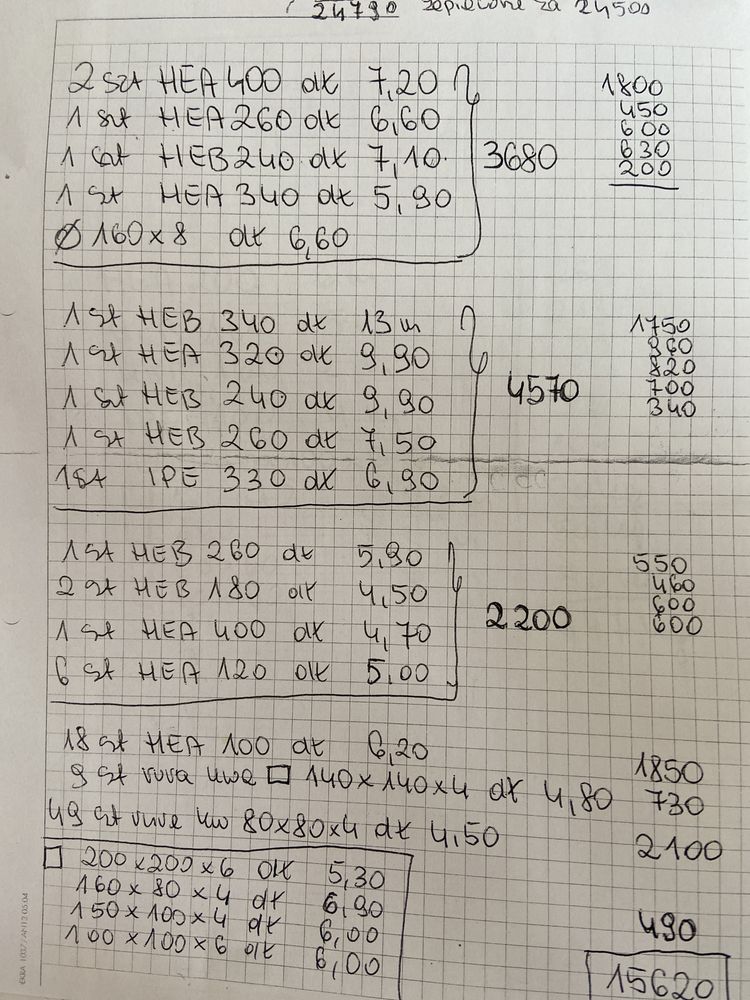 24790 zapłacone za 24500
2 szt HEA 400 dł 7,20 1800
1 szt HEA 260 dł 6,60 450
1 szt HEB 240 dł 7,10 3680 600
1 szt HEA 340 dł 5,90 630
Ø 160x8 dł 6,60 200
1 szt HEB 340 dł 13 m 1750
1 szt HEA 320 dł 9,90 960
1 szt HEB 240 dł 9,90 4570 820
1 szt HEB 260 dł 7,50 700
1 szt IPE 330 dł 6,90 340
1 szt HEB 260 dł 5,90 550
2 szt HEB 180 dł 4,50 460
1 szt HEA 400 dł 4,70 2200 600
6 szt HEA 120 dł 5,00 600
18 szt HEA 100 dł 6,20 1850
9 szt rura kwa □ 140x140x4 dł 4,80 730
49 szt rura kw 80x80x4 dł 4,50 2100
□ 200x200x6 dł 5,30
160x80x4 dł 6,90
150x100x4 dł 6,00 490
100x100x6 dł 6,00
15620